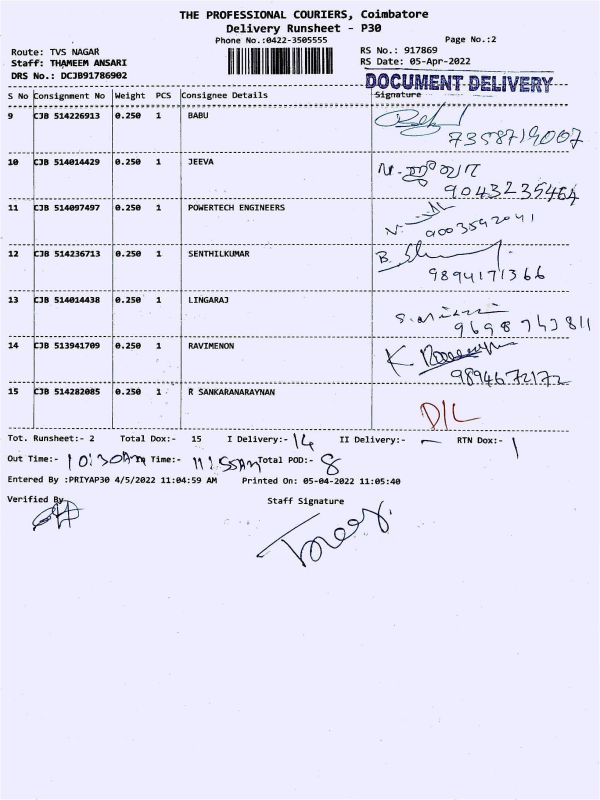 THE PROFESSIONAL COURIERS, Coimbatore
Delivery Runsheet - P30
Phone No.:0422-3505555
Page No.:2
Route: TVS NAGAR
RS No.: 917869
Staff: THAMEEM ANSARI
RS Date: 05-Apr-2022
DRS No.: DCJB91786902
DOCUMENT DELIVERY
S No Consignment No Weight PCS Consignee Details Signature
9 CJB 514226913 0.250 1 BABU
7358719007
10 CJB 514014429 0.250 1 JEEVA
9043235464
11 CJB 514097497 0.250 1 POWERTECH ENGINEERS
9003592041
12 CJB 514236713 0.250 1 SENTHILKUMAR
9894171366
13 CJB 514014438 0.250 1 LINGARAJ
9698743811
14 CJB 513941709 0.250 1 RAVIMENON
9894672172
15 CJB 514282085 0.250 1 R SANKARANARAYNAN
D/L
Tot. Runsheet:- 2 Total Dox:- 15 I Delivery:- 14 II Delivery:- – RTN Dox:- 1
Out Time:- 10:30Am Time:- 11:55Am Total POD:- 8
Entered By :PRIYAP30 4/5/2022 11:04:59 AM Printed On: 05-04-2022 11:05:40
Verified By
Staff Signature